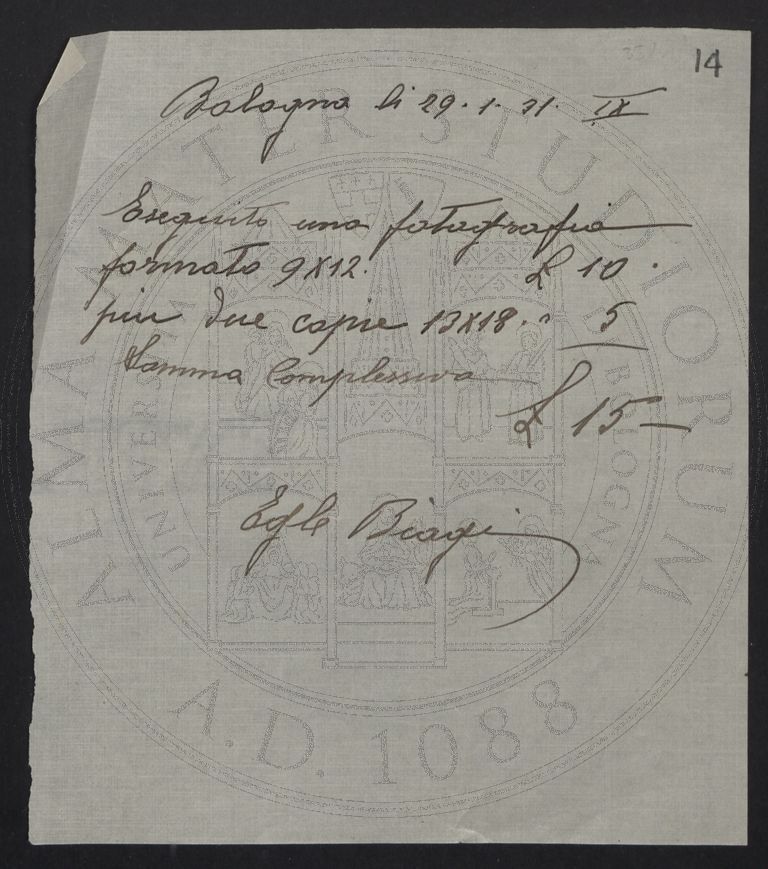 14
Bologna li 29.1.31. IX
Eseguito una fotografia
formato 9X12. £ 10.
piu due copie 13X18. " 5
Somma Complessiva
£ 15—
Egle Biagi
ALMA MATER STUDIORUM
UNIVERSITÀ DI BOLOGNA
A.D. 1088